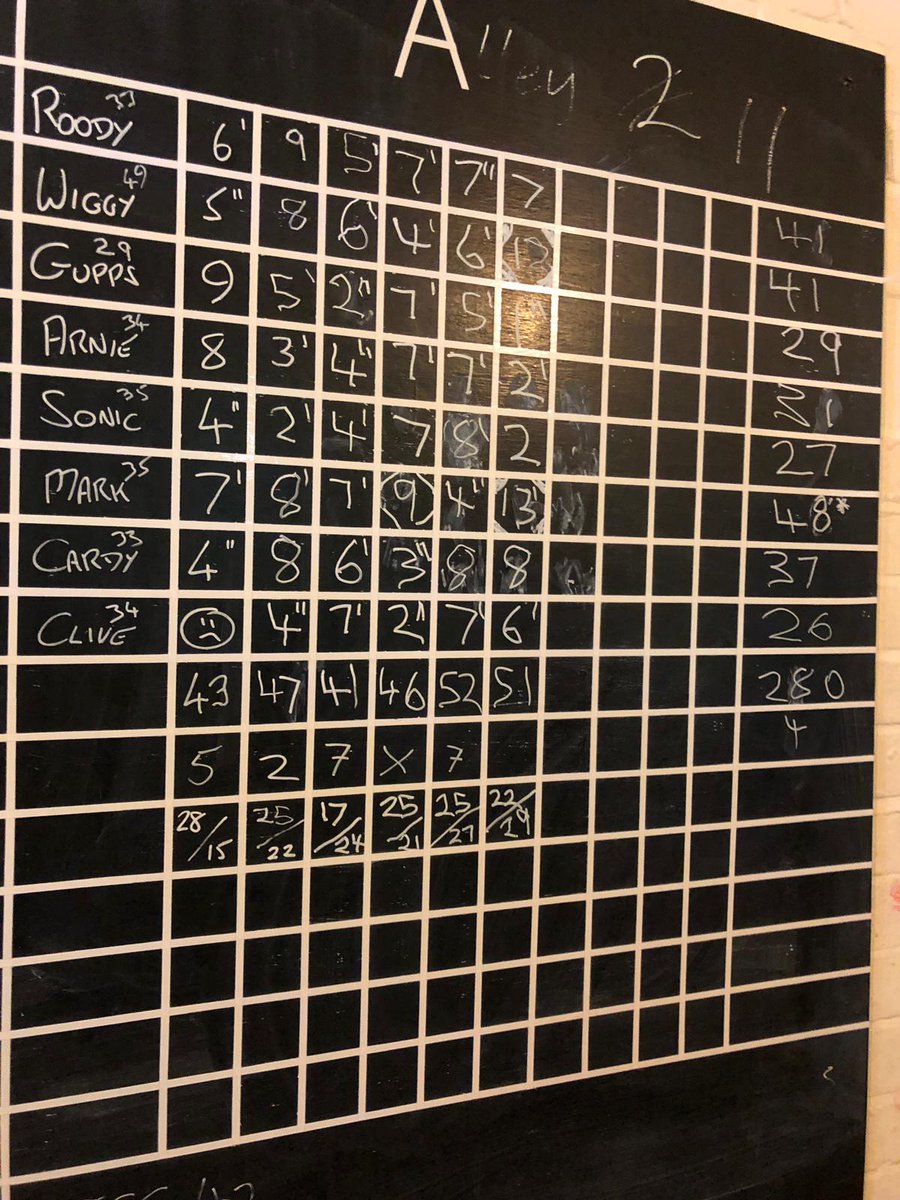 Alley 2 11
ROODY 33 6' 9 5' 7' 7" 7 41
WIGGY 49 5" 8 6' 4' 6' 12 41
GUPPS 29 9 5' 2" 7' 5' 29
ARNIE 34 8 3' 4" 7' 7' 2'
SONIC 35 4" 2' 4' 7 8' 2 27
MARK 35 7' 8' 7' 9 4" 13' 48'*
CARDY 33 4" 8 6' 3" 8 8 37
CLIVE 34 4" 7' 2" 7' 6' 26
43 47 41 46 52 51 280
5 2 7 X 7 4
28/15 25/22 17/24 25/21 25/27 22/29